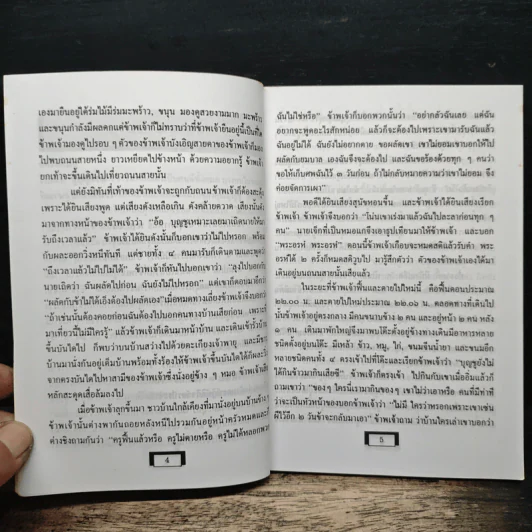 เองมายืนอยู่ใต้ร่มไม้มีร่มมะพร้าว, ขนุน มองดูสวยงามมาก มะพร้าว
และขนุนกำลังมีผลดกแต่ข้าพเจ้าก็ไม่ทราบว่าที่ข้าพเจ้ายืนอยู่นี้เป็นที่ใด
ข้าพเจ้ามองดูไปรอบ ๆ ตัวของข้าพเจ้านั่งเอิญสายตาของข้าพเจ้าก็มอง
ไปพบถนนสายหนึ่ง ยาวเหยียดไปข้างหน้า ด้วยความอยากรู้ ข้าพเจ้า
ยกเท้าจะขึ้นเดินไปเที่ยวถนนสายนั้น
แต่ยังมิทันที่เท้าของข้าพเจ้าจะถูกกับถนน ข้าพเจ้าก็ต้องสะดุ้ง
เพราะได้ยินเสียงพูด แต่เสียงดังเหลือเกิน ดังคล้ายตวาด เสียงนั้นดัง
มาจากทางหน้าของข้าพเจ้าว่า “อ้อ บุญชูเหมาะเลยมาเถิดนายให้มา
รับถึงเวลาแล้ว” ข้าพเจ้าได้ยินดังนั้นก็บอกเขาว่าไม่ไปหรอก พร้อม
กับผละออกวิ่งหนีทันที แต่ชายทั้ง ๔ คนมารับก็เดินตามและพูดว่า
“ถึงเวลาแล้วไม่ไปไม่ได้” ข้าพเจ้าก็หันไปบอกเขาว่า “ลุงไปบอกกับ
นายเถิดว่า ฉันผลัดไปก่อน ฉันยังไม่ไปหรอก” แต่เขาก็ตอบมาอีกว่า
“ผลัดกับข้าไม่ได้เอ็งต้องไปผลัดเอง” เมื่อหมดทางเลี่ยงข้าพเจ้าจึงบอกว่า
“ถ้าเช่นนั้นต้องคอยก่อนฉันต้องไปบอกคนทางบ้านเสียก่อน เพราะฉัน
มาเที่ยวนี้ไม่มีใครรู้” แล้วข้าพเจ้าก็เดินมาหน้าบ้าน และเดินเข้ารั้วบ้าน
ขึ้นบันไดไป ก็พบว่าบนบ้านสว่างไปด้วยตะเกียงเจ้าพายุ และมีชาวบ้าน
มานั่งกันอยู่เต็มบ้านพร้อมทั้งร้องให้ข้าพเจ้าขึ้นบันไดได้ก็ผละวิ่ง
จากตรงบันไดไปหาสามีของข้าพเจ้าซึ่งนั่งอยู่ข้าง ๆ หมอ ข้าพเจ้าเดิน
หกสะดุดเสื่อล้มลงไป
เมื่อข้าพเจ้าลุกขึ้นมา ชาวบ้านใกล้เคียงที่มานั่งอยู่บนบ้านข้าง ๆ
ข้าพเจ้านั้นต่างพากันถอยหลังหนีไปรวมกันอยู่หน้าครัวหมดและ
ต่างชิงถามกันว่า “ครูฟื้นแล้วหรือ ครูไม่ตายหรือ ครูไม่ได้หลอกพวก
4
ฉันไม่ใช่หรือ” ข้าพเจ้าก็บอกพวกนั้นว่า “อย่ากลัวฉันเลย แต่ฉัน
อยากจะพูดอะไรสักหน่อย แล้วก็จะต้องไปเพราะเขามารับฉันแล้ว
ฉันอยู่ไม่ได้ ฉันยังไม่อยากตาย ขอผลัดเขา เขาไม่ยอมเขาบอกให้ไป
ผลัดกับยมบาล เองฉันจึงจะต้องไป และฉันขอร้องด้วยทุก ๆ คนว่า
ขอให้เก็บศพฉันไว้ ๓ วันก่อน ถ้าไม่กลับหมายความว่าเขาไม่ยอม จึง
ค่อยจัดการเผา”
พอดีได้ยินเสียงสุนัขหอนขึ้น และข้าพเจ้าก็ได้ยินเสียงเรียก
ข้าพเจ้า, ข้าพเจ้าจึงบอกว่า “ไม่นะเขาเร่งมาแล้วฉันไปละลาก่อนทุก ๆ
คน” นายเจ็กที่เป็นหมอแกก็จึงเอาธูปเทียนมาให้ข้าพเจ้า และบอก
“พระอรหํ พระอรหํ” ตอนนี้ข้าพเจ้าเกือบจะหมดสติแล้วรับคำ พระ
อรหํ ได้ ๒ ครั้งก็หมดสติวูบไป มารู้สึกตัวว่า ตัวของข้าพเจ้าเองได้มา
เดินอยู่บนถนนสายนั้นเสียแล้ว
ในระยะที่ข้าพเจ้าฟื้นและตายไปใหม่นี้ คือฟื้นตอนประมาณ
๒๒.๐๐ น. และตายไปใหม่ประมาณ ๒๒.๐๖ น. ตลอดทางที่เดินไป
นั้นข้าพเจ้าอยู่ตรงกลาง มีคนขนาบข้าง ๒ คน และอยู่หน้า ๑ คน หลัง
๑ คน เดินมาพักใหญ่จึงมาพบโต๊ะตั้งอยู่ข้างทางเดินมีอาหารหลาย
ชนิดตั้งอยู่บนโต๊ะ มีเหล้า ข้าว, หมู, ไก่, ขนมจีนน้ำยา และขนมอีก
หลายชนิดคนทั้ง ๔ ตรงเข้าไปที่โต๊ะและเรียกข้าพเจ้าว่า “บุญชูยังไม่
ได้กินข้าวมากินเสียซี” ข้าพเจ้าก็ตรงเข้าไป ไปกินกับเขาเมื่ออิ่มแล้วก็
ถามเขาว่า “ของๆ ใครนี่เรามากินของๆ เขาไม่ว่าเอาหรือ คนที่มีท่าที
ว่าจะเป็นหัวหน้าของบอกข้าพเจ้าว่า “ไม่มี ใครว่าหรอกเพราะเขาเซ่น
ผีไว้อีก ๒ วันข้าจะกลับมาเอา” ข้าพเจ้าถาม ว่าบ้านใครเล่าเขาบอกว่า
5